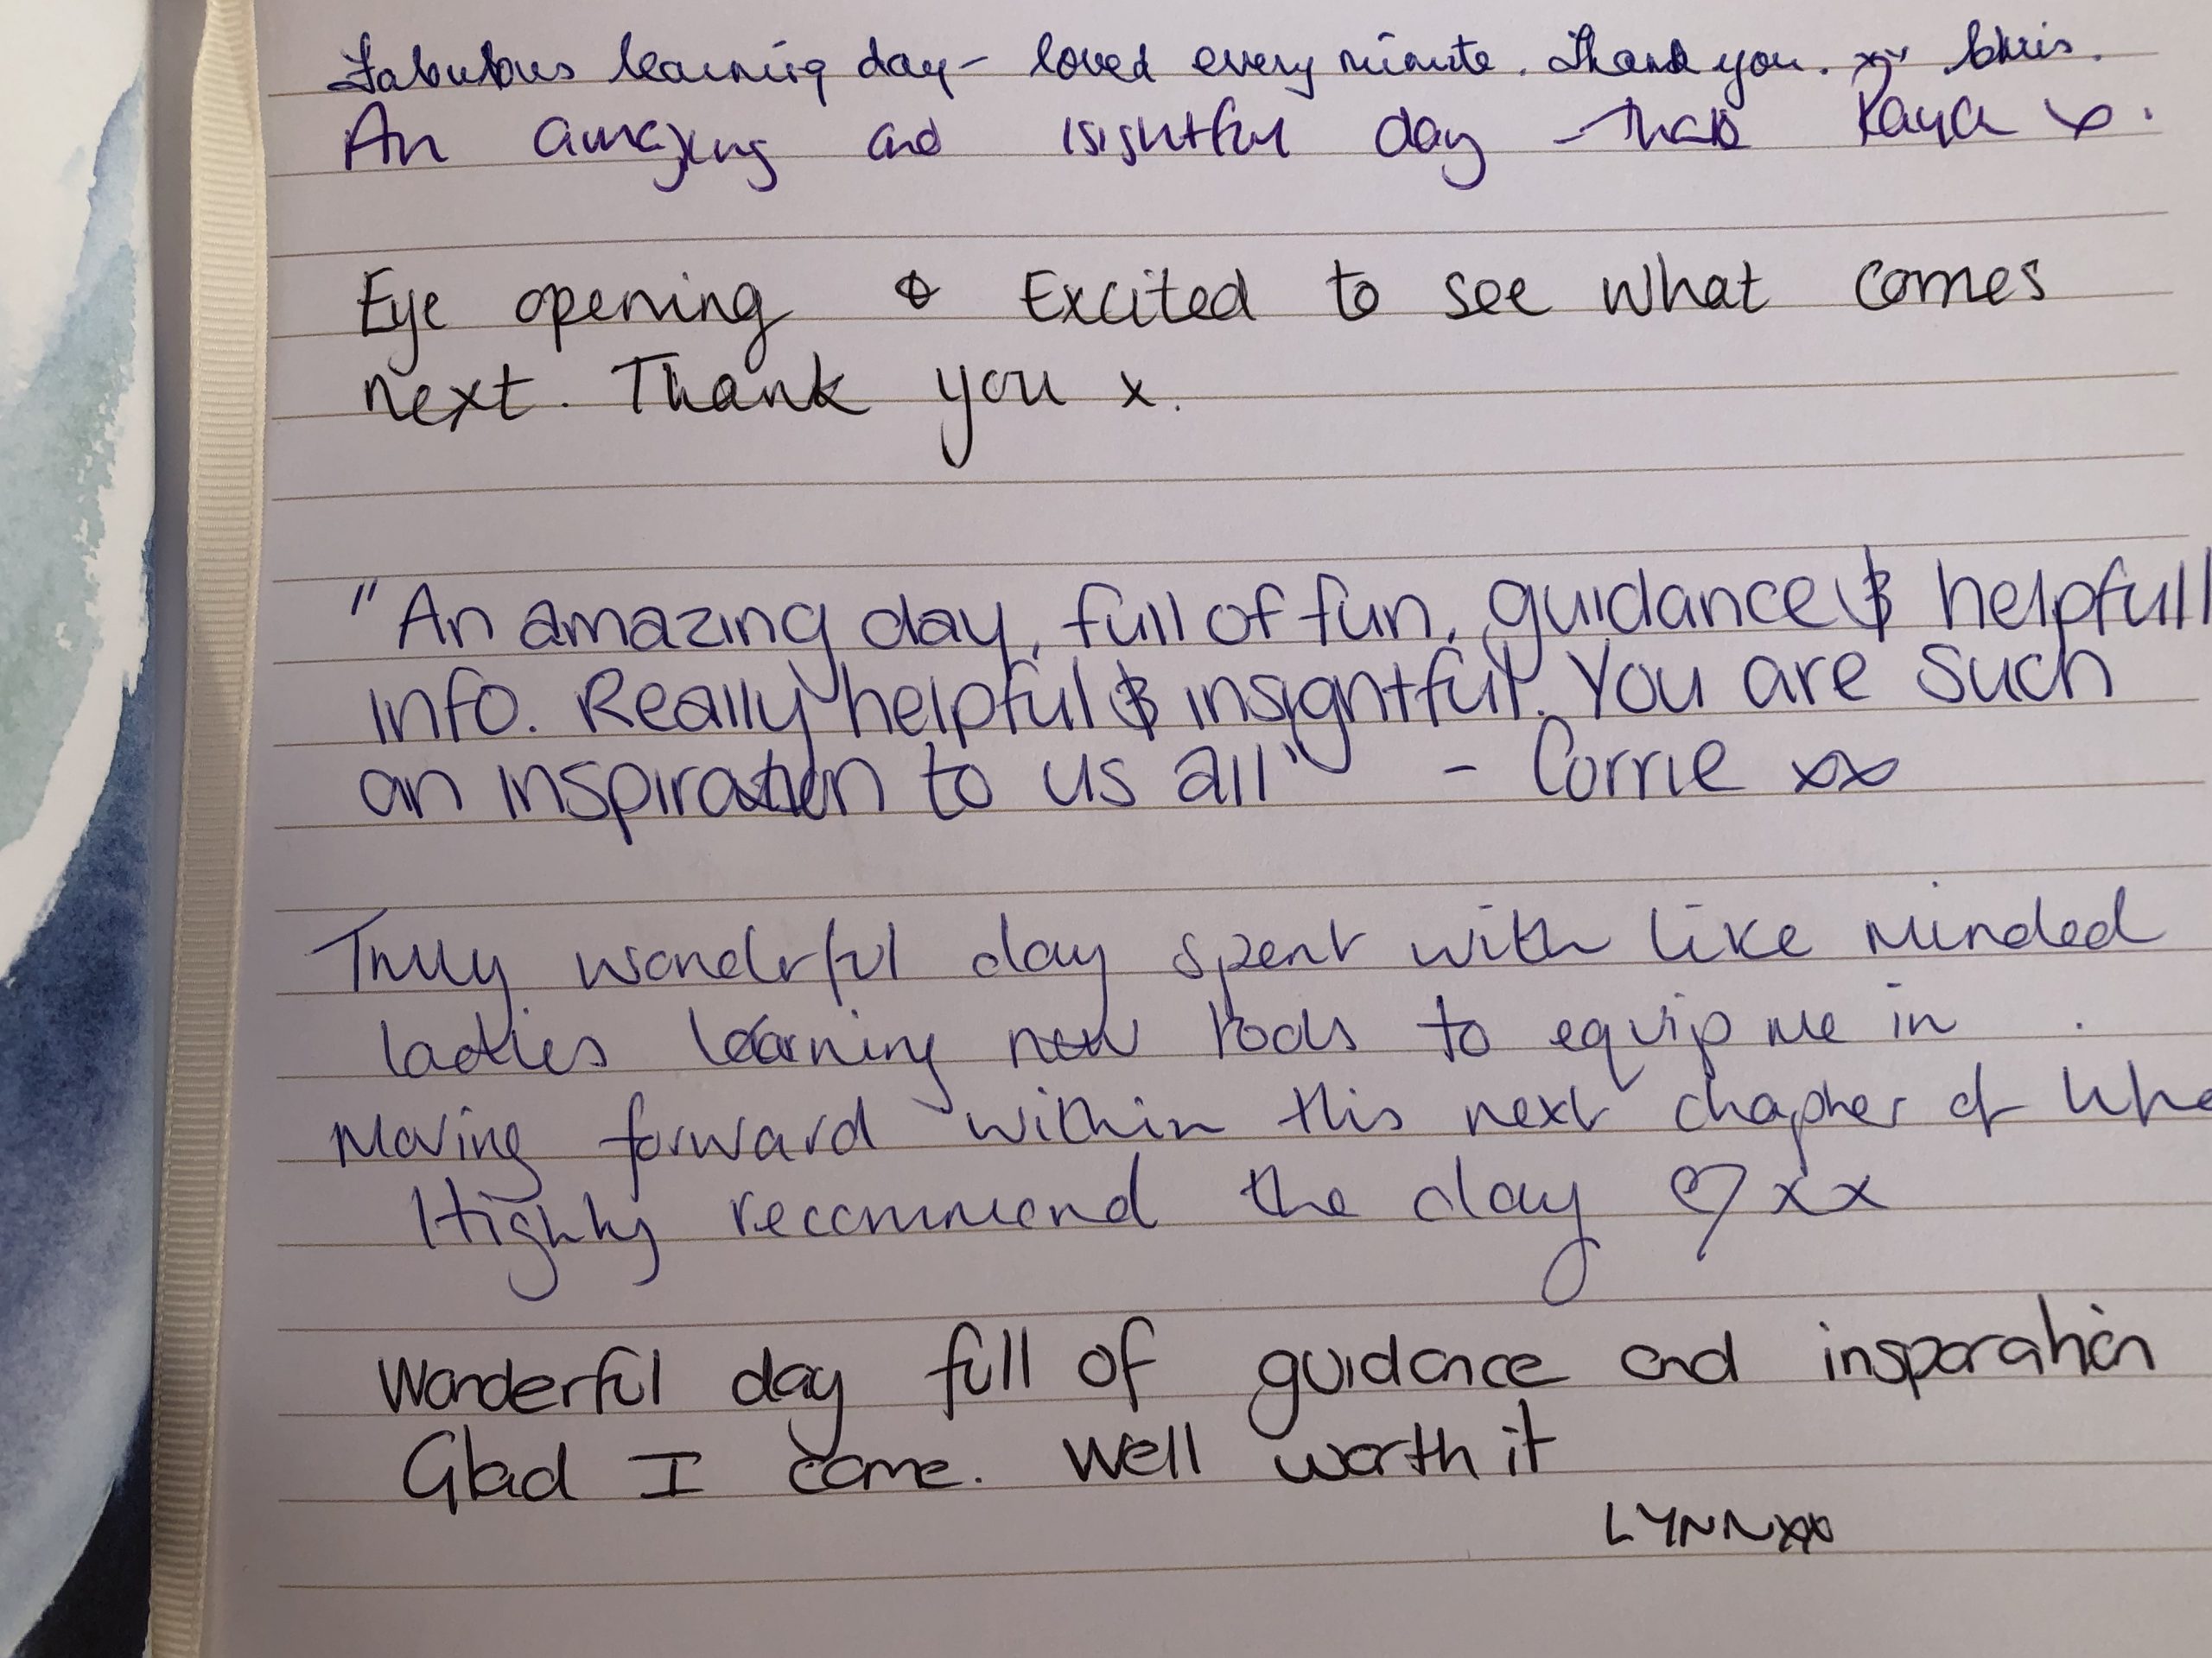 Fabulous learning day - loved every minute. Thank you. xx Chris.
An amazing and isightful day - Thanks x.
Eye opening & Excited to see what comes
next. Thank you x.
"An amazing day, full of fun, guidance & helpfull
info. Really helpful & insightful. You are such
an inspiration to us all" - Corrie xx
Truly wonderful day spent with like minded
ladies learning new tools to equip me in
Moving forward within this next chapter of
Highly recommend the day ♡ xx
Wonderful day full of guidance and insporation
Glad I came. Well worth it
LYNN xx